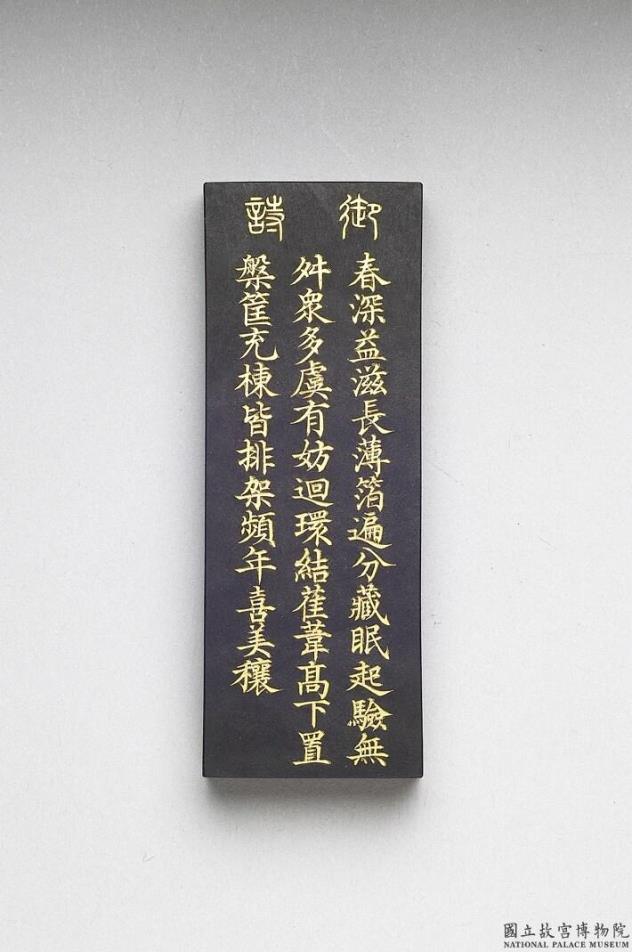 御
詩
春深益滋長薄箔遍分藏眠起驗無
舛衆多虞有妨迴環結萑葦高下置
槃筐充棟皆排架頻年喜美穰
國立故宮博物院
NATIONAL PALACE MUSEUM